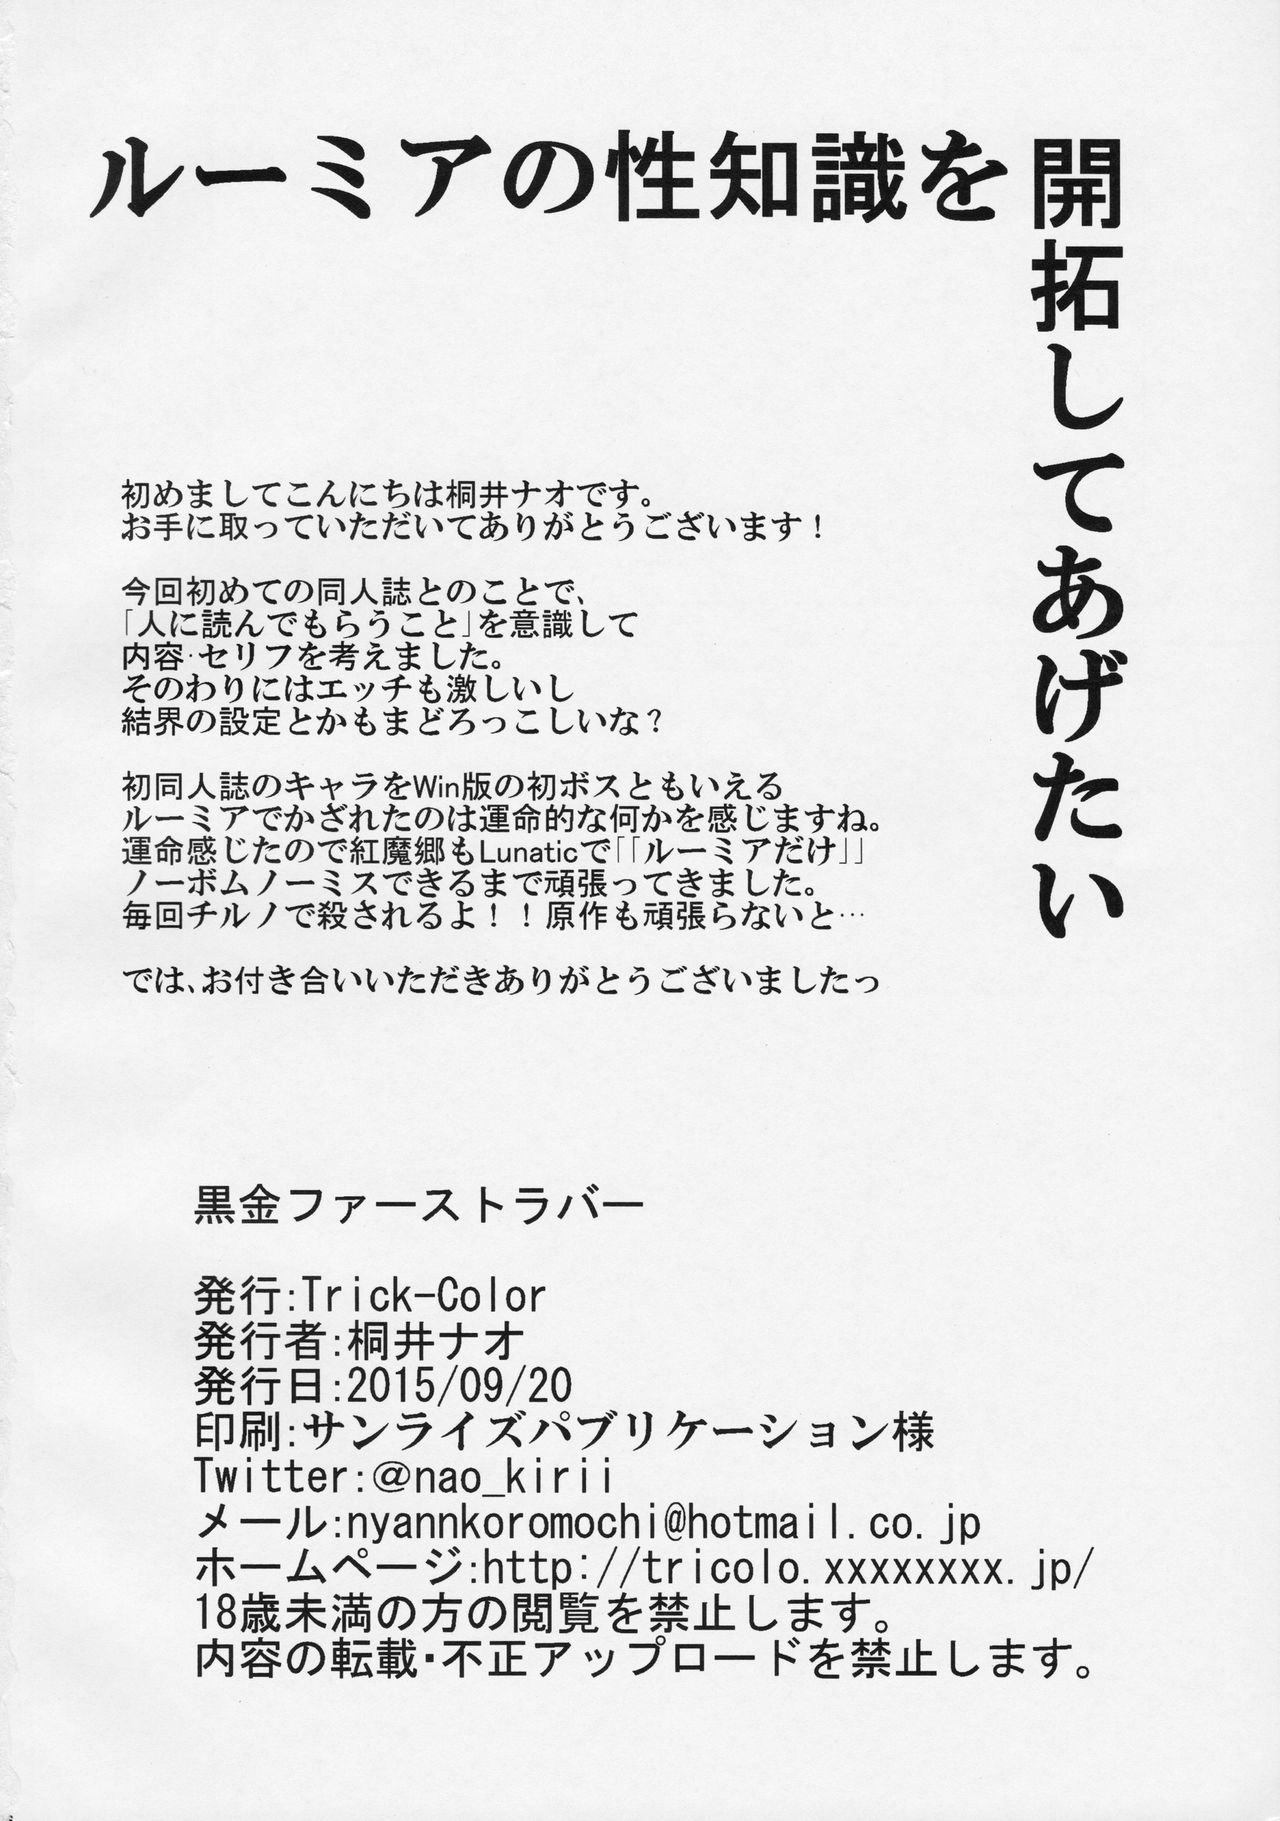 ルーミアの性知識を
開拓してあげたい
初めましてこんにちは桐井ナオです。
お手に取っていただいてありがとうございます！
今回初めての同人誌とのことで、
「人に読んでもらうこと」を意識して
内容・セリフを考えました。
そのわりにはエッチも激しいし
結界の設定とかもまどろっこしいな？
初同人誌のキャラをWin版の初ボスともいえる
ルーミアでかざれたのは運命的な何かを感じますね。
運命感じたので紅魔郷もLunaticで「「ルーミアだけ」」
ノーボムノーミスできるまで頑張ってきました。
毎回チルノで殺されるよ！！原作も頑張らないと…
では、お付き合いいただきありがとうございましたっ
黒金ファーストラバー
発行:Trick-Color
発行者:桐井ナオ
発行日:2015/09/20
印刷:サンライズパブリケーション様
Twitter:@nao_kirii
メール:nyannkoromochi@hotmail.co.jp
ホームページ:http://tricolo.xxxxxxxx.jp/
18歳未満の方の閲覧を禁止します。
内容の転載・不正アップロードを禁止します。